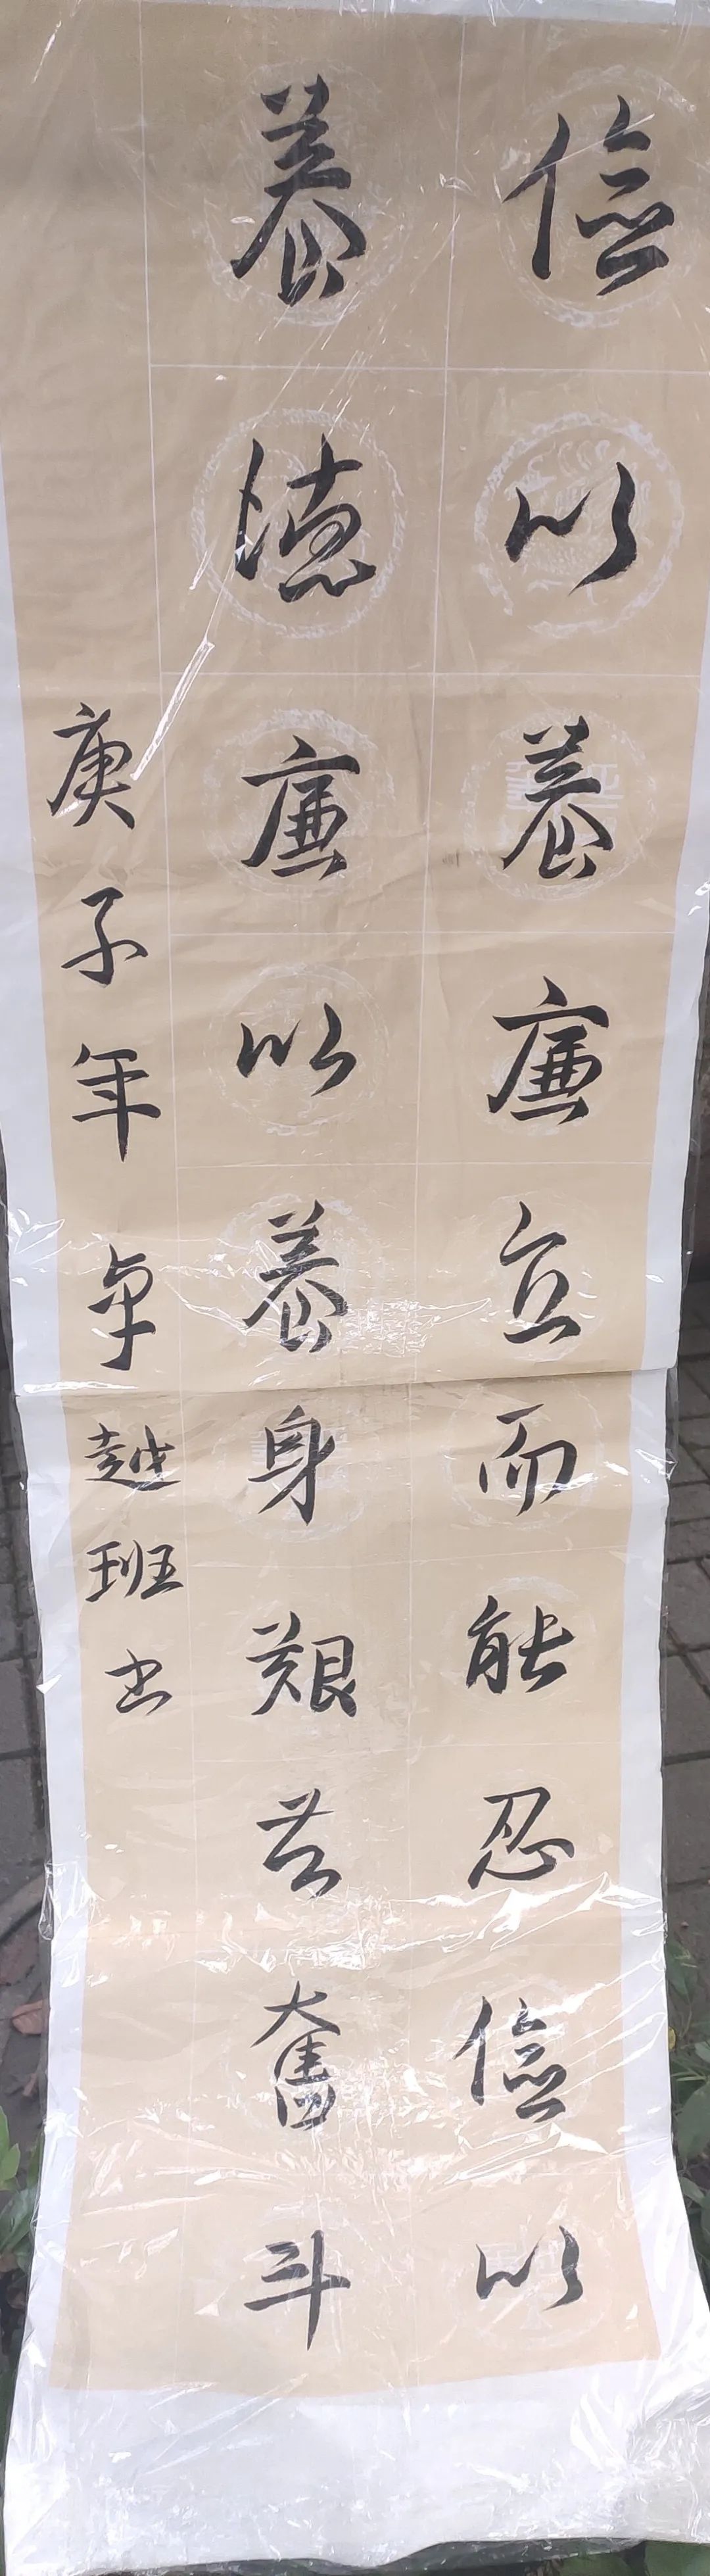 儉以養廉立而能忍儉以
養德廉以養身艱苦奮斗
庚子年卓越班书